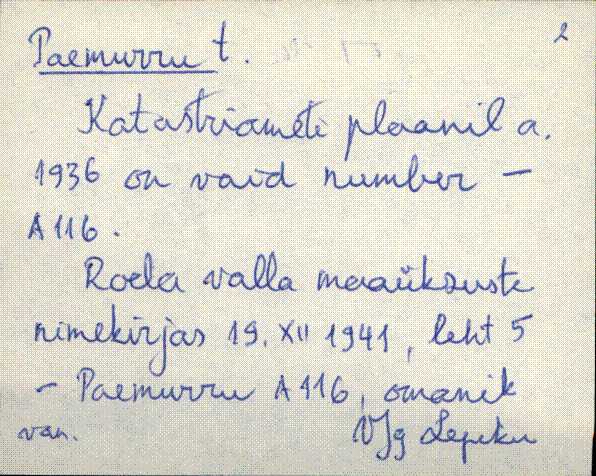 2
Paemurru t.
Katastriameti plaanil a.
1936 on vaid number –
A 116.
Roela valla maaüksuste
nimekirjas 19. XII 1941, leht 5
– Paemurru A 116, omanik
van. Lepiku